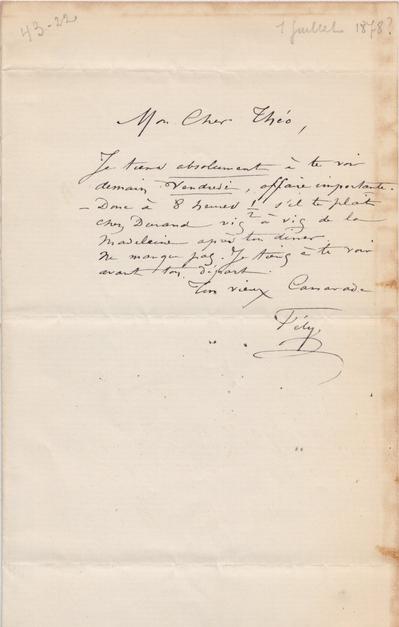 43-22
1 Juillet 1878?
Mon Cher Théo,
Je tiens absolument à te voir
demain Vendredi, affaire importante.
– Donc à 8 heures 1/2 s'il te plait
chez Durand vis à vis de la
Madeleine après ton diner
ne manque pas. Je tiens à te voir
avant ton départ.
Ton vieux Camarade